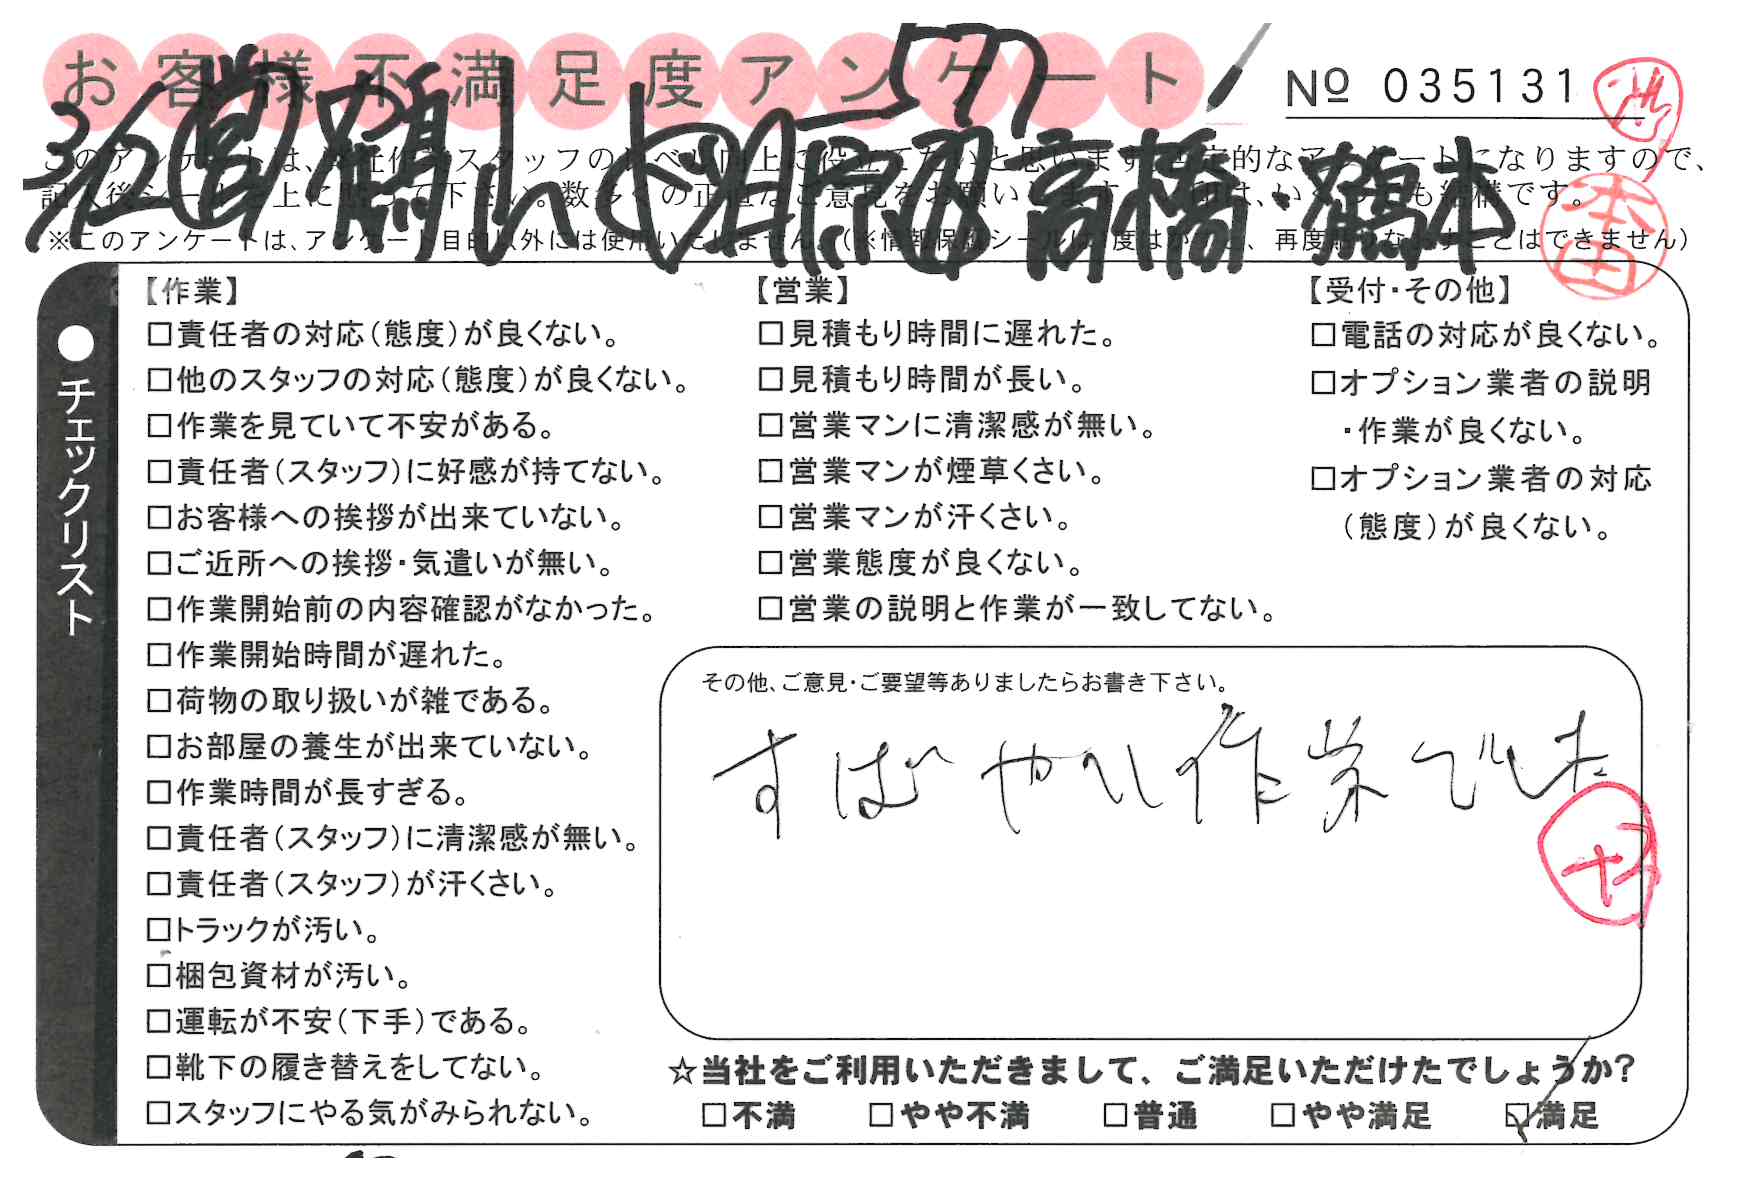 お客様不満足度アンケート
№ 035131
3/22 営 鶴
高橋・鶴本
このアンケートは、
記入後シールを上に貼って下さい。数多くの正直なご意見をお願いします。
※このアンケートは、アンケート目的以外には使用いたしません。(※情報保護シールは1度はがすと、再度貼りなおすことはできません)
本田
●チェックリスト
【作業】
□責任者の対応(態度)が良くない。
□他のスタッフの対応(態度)が良くない。
□作業を見ていて不安がある。
□責任者(スタッフ)に好感が持てない。
□お客様への挨拶が出来ていない。
□ご近所への挨拶・気遣いが無い。
□作業開始前の内容確認がなかった。
□作業開始時間が遅れた。
□荷物の取り扱いが雑である。
□お部屋の養生が出来ていない。
□作業時間が長すぎる。
□責任者(スタッフ)に清潔感が無い。
□責任者(スタッフ)が汗くさい。
□トラックが汚い。
□梱包資材が汚い。
□運転が不安(下手)である。
□靴下の履き替えをしてない。
□スタッフにやる気がみられない。
【営業】
□見積もり時間に遅れた。
□見積もり時間が長い。
□営業マンに清潔感が無い。
□営業マンが煙草くさい。
□営業マンが汗くさい。
□営業態度が良くない。
□営業の説明と作業が一致してない。
【受付・その他】
□電話の対応が良くない。
□オプション業者の説明
・作業が良くない。
□オプション業者の対応
(態度)が良くない。
その他、ご意見・ご要望等ありましたらお書き下さい。
すばやい作業でした
☆当社をご利用いただきまして、ご満足いただけたでしょうか?
□不満 □やや不満 □普通 □やや満足 ☑満足